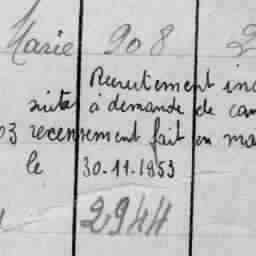 Marie 908 2
Recrutement ind
suite à demande de cam
03 recensement fait en ma
le 30.11.1953
2944